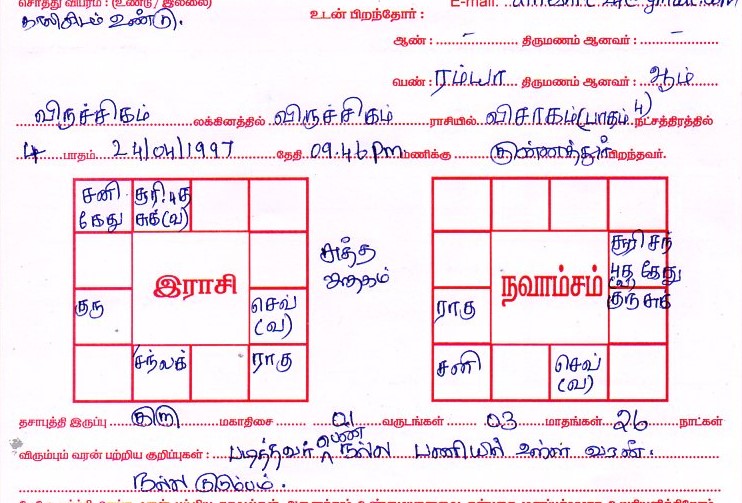 சொத்து விபரம் : (உண்டு / இல்லை)
காலியிடம் உண்டு.
E-mail:
உடன் பிறந்தோர் :
ஆண் : – திருமணம் ஆனவர் : –
பெண் : ரம்யா திருமணம் ஆனவர் : ஆம்
விருச்சிகம் லக்கினத்தில் விருச்சிகம் ராசியில் விசாகம் (பாதம் 4) நட்சத்திரத்தில்
4 பாதம் 24/04/1997 தேதி 09.46 pm மணிக்கு குன்னத்தூர் பிறந்தவர்.
சனி கேது
சூரி புத சுக் (வ)
குரு
இராசி
செவ் (வ)
சந் லக்
ராகு
சுத்த ஜாதகம்
சூரி சந் புத கேது
ராகு
நவாம்சம்
குரு சுக்
சனி
செவ் (வ)
தசாபுத்தி இருப்பு குரு மகாதிசை 01 வருடங்கள் 03 மாதங்கள் 26 நாட்கள்
விரும்பும் வரன் பற்றிய குறிப்புகள் : படித்தவர் பெண் நல்ல பணியில் உள்ள வரன்.
நல்ல குடும்பம்.